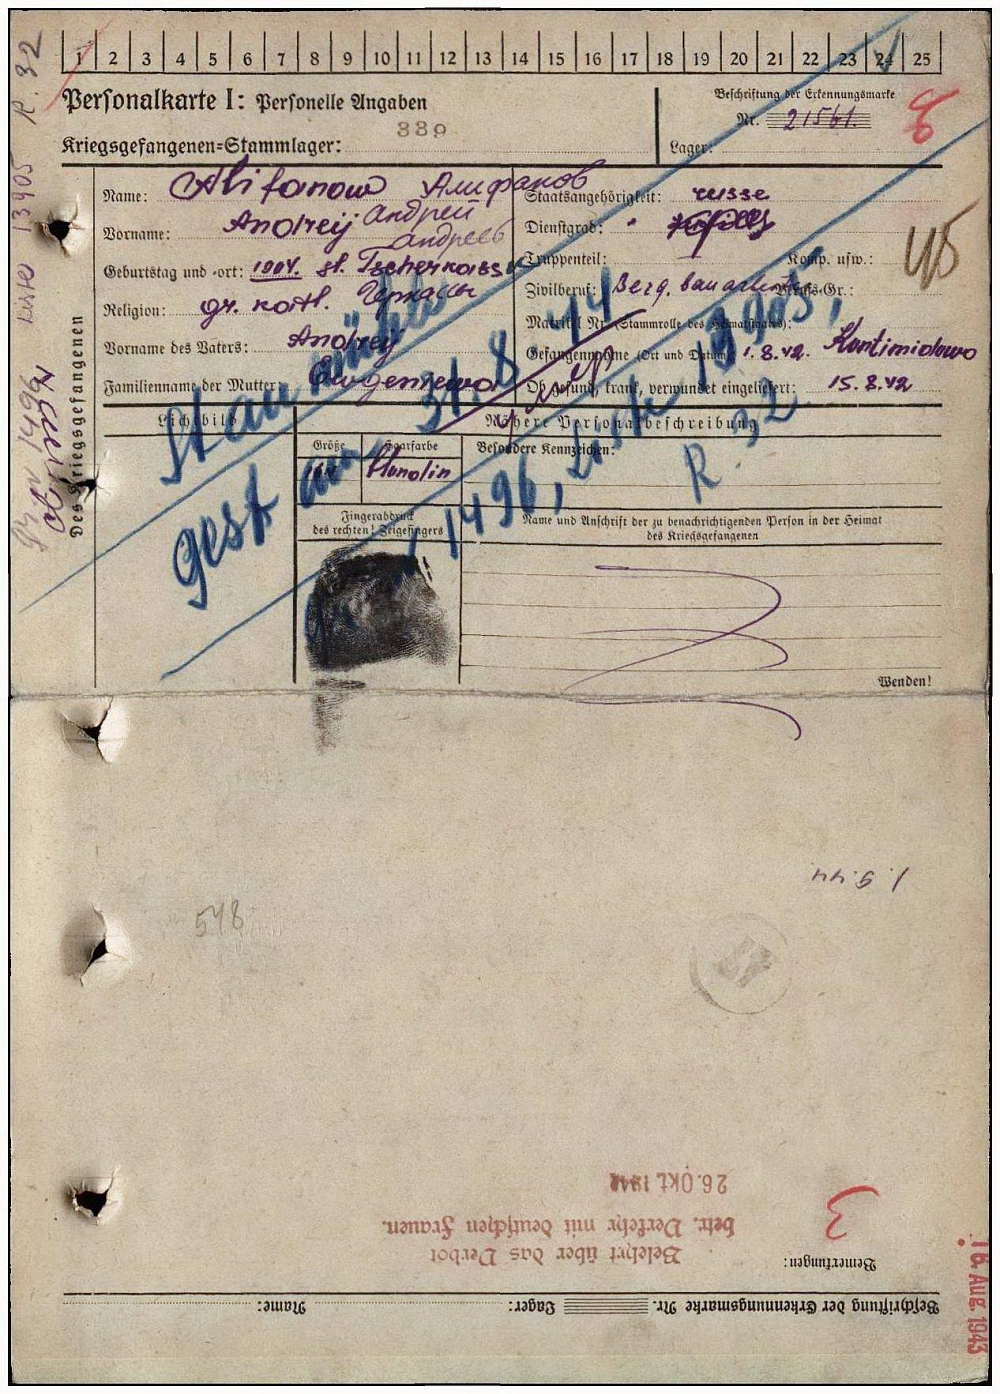 1 2 3 4 5 6 7 8 9 10 11 12 13 14 15 16 17 18 19 20 21 22 23 24 25
Personalkarte I: Personelle Angaben
Beschriftung der Erkennungsmarke
Nr. 21561.
Kriegsgefangenen=Stammlager: 339
Lager:
Des Kriegsgefangenen
Name: Alifanow Алифанов
Vorname: Andreij Андрей
Андреев
Geburtstag und -ort: 1904. st. Tscherkassk
Черкассы
Religion: gr. kath.
Vorname des Vaters: Andreij
Familienname der Mutter: Ewgeniewa
Staatsangehörigkeit: russe
Dienstgrad:
Truppenteil: Komp. usw.:
Zivilberuf: Berg. bauarbeiter Berufs-Gr.:
Matrikel Nr. (Stammrolle des Heimatstaates):
Gefangennahme (Ort und Datum): 1.8.42. Kantimidowo
Ob gesund, krank, verwundet eingeliefert: 15.8.42
Lichtbild
Nähere Personalbeschreibung
Größe
Haarfarbe
Besondere Kennzeichen:
Fingerabdruck
des rechten! Zeigefingers
Name und Anschrift der zu benachrichtigenden Person in der Heimat
des Kriegsgefangenen
gest am 31.8.44
1496, Liste 13905,
R. 32
R. 32
Liste 13905
1496
Wenden!
1.9.44
548
3
26. Okt. 1942
Belehrt über das Verbot
betr. Verkehr mit deutschen Frauen.
Bemerkungen:
Beschriftung der Erkennungsmarke Nr. Lager: Name:
16. Aug. 1943